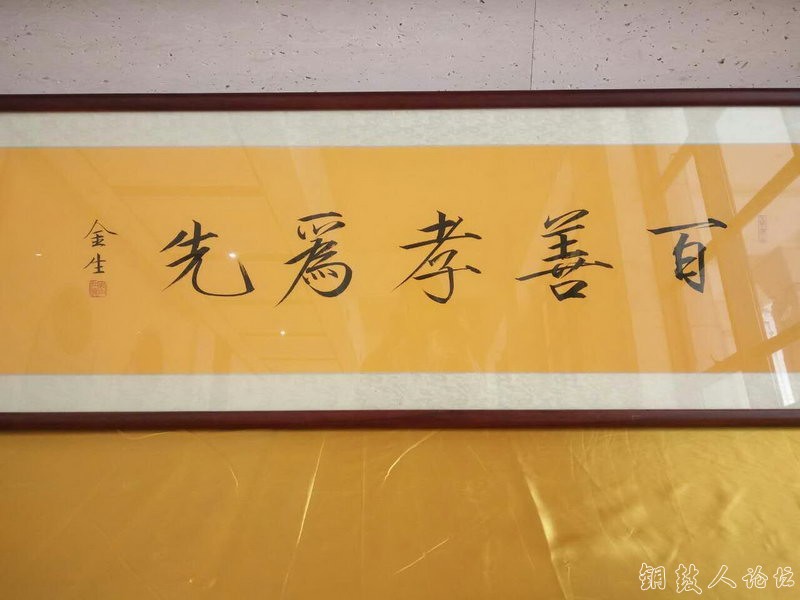 百善孝爲先
金生
铜鼓人论坛